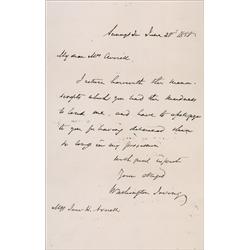 Sunnyside June 28th 1858
My dear Mrs Averell
I return herewith the manu-
scripts which you had the kindness
to lend me, and have to apologize
to you for having detained them
so long in my possession
With great respect
Your obliged
Washington Irving
Mrs H. Averell